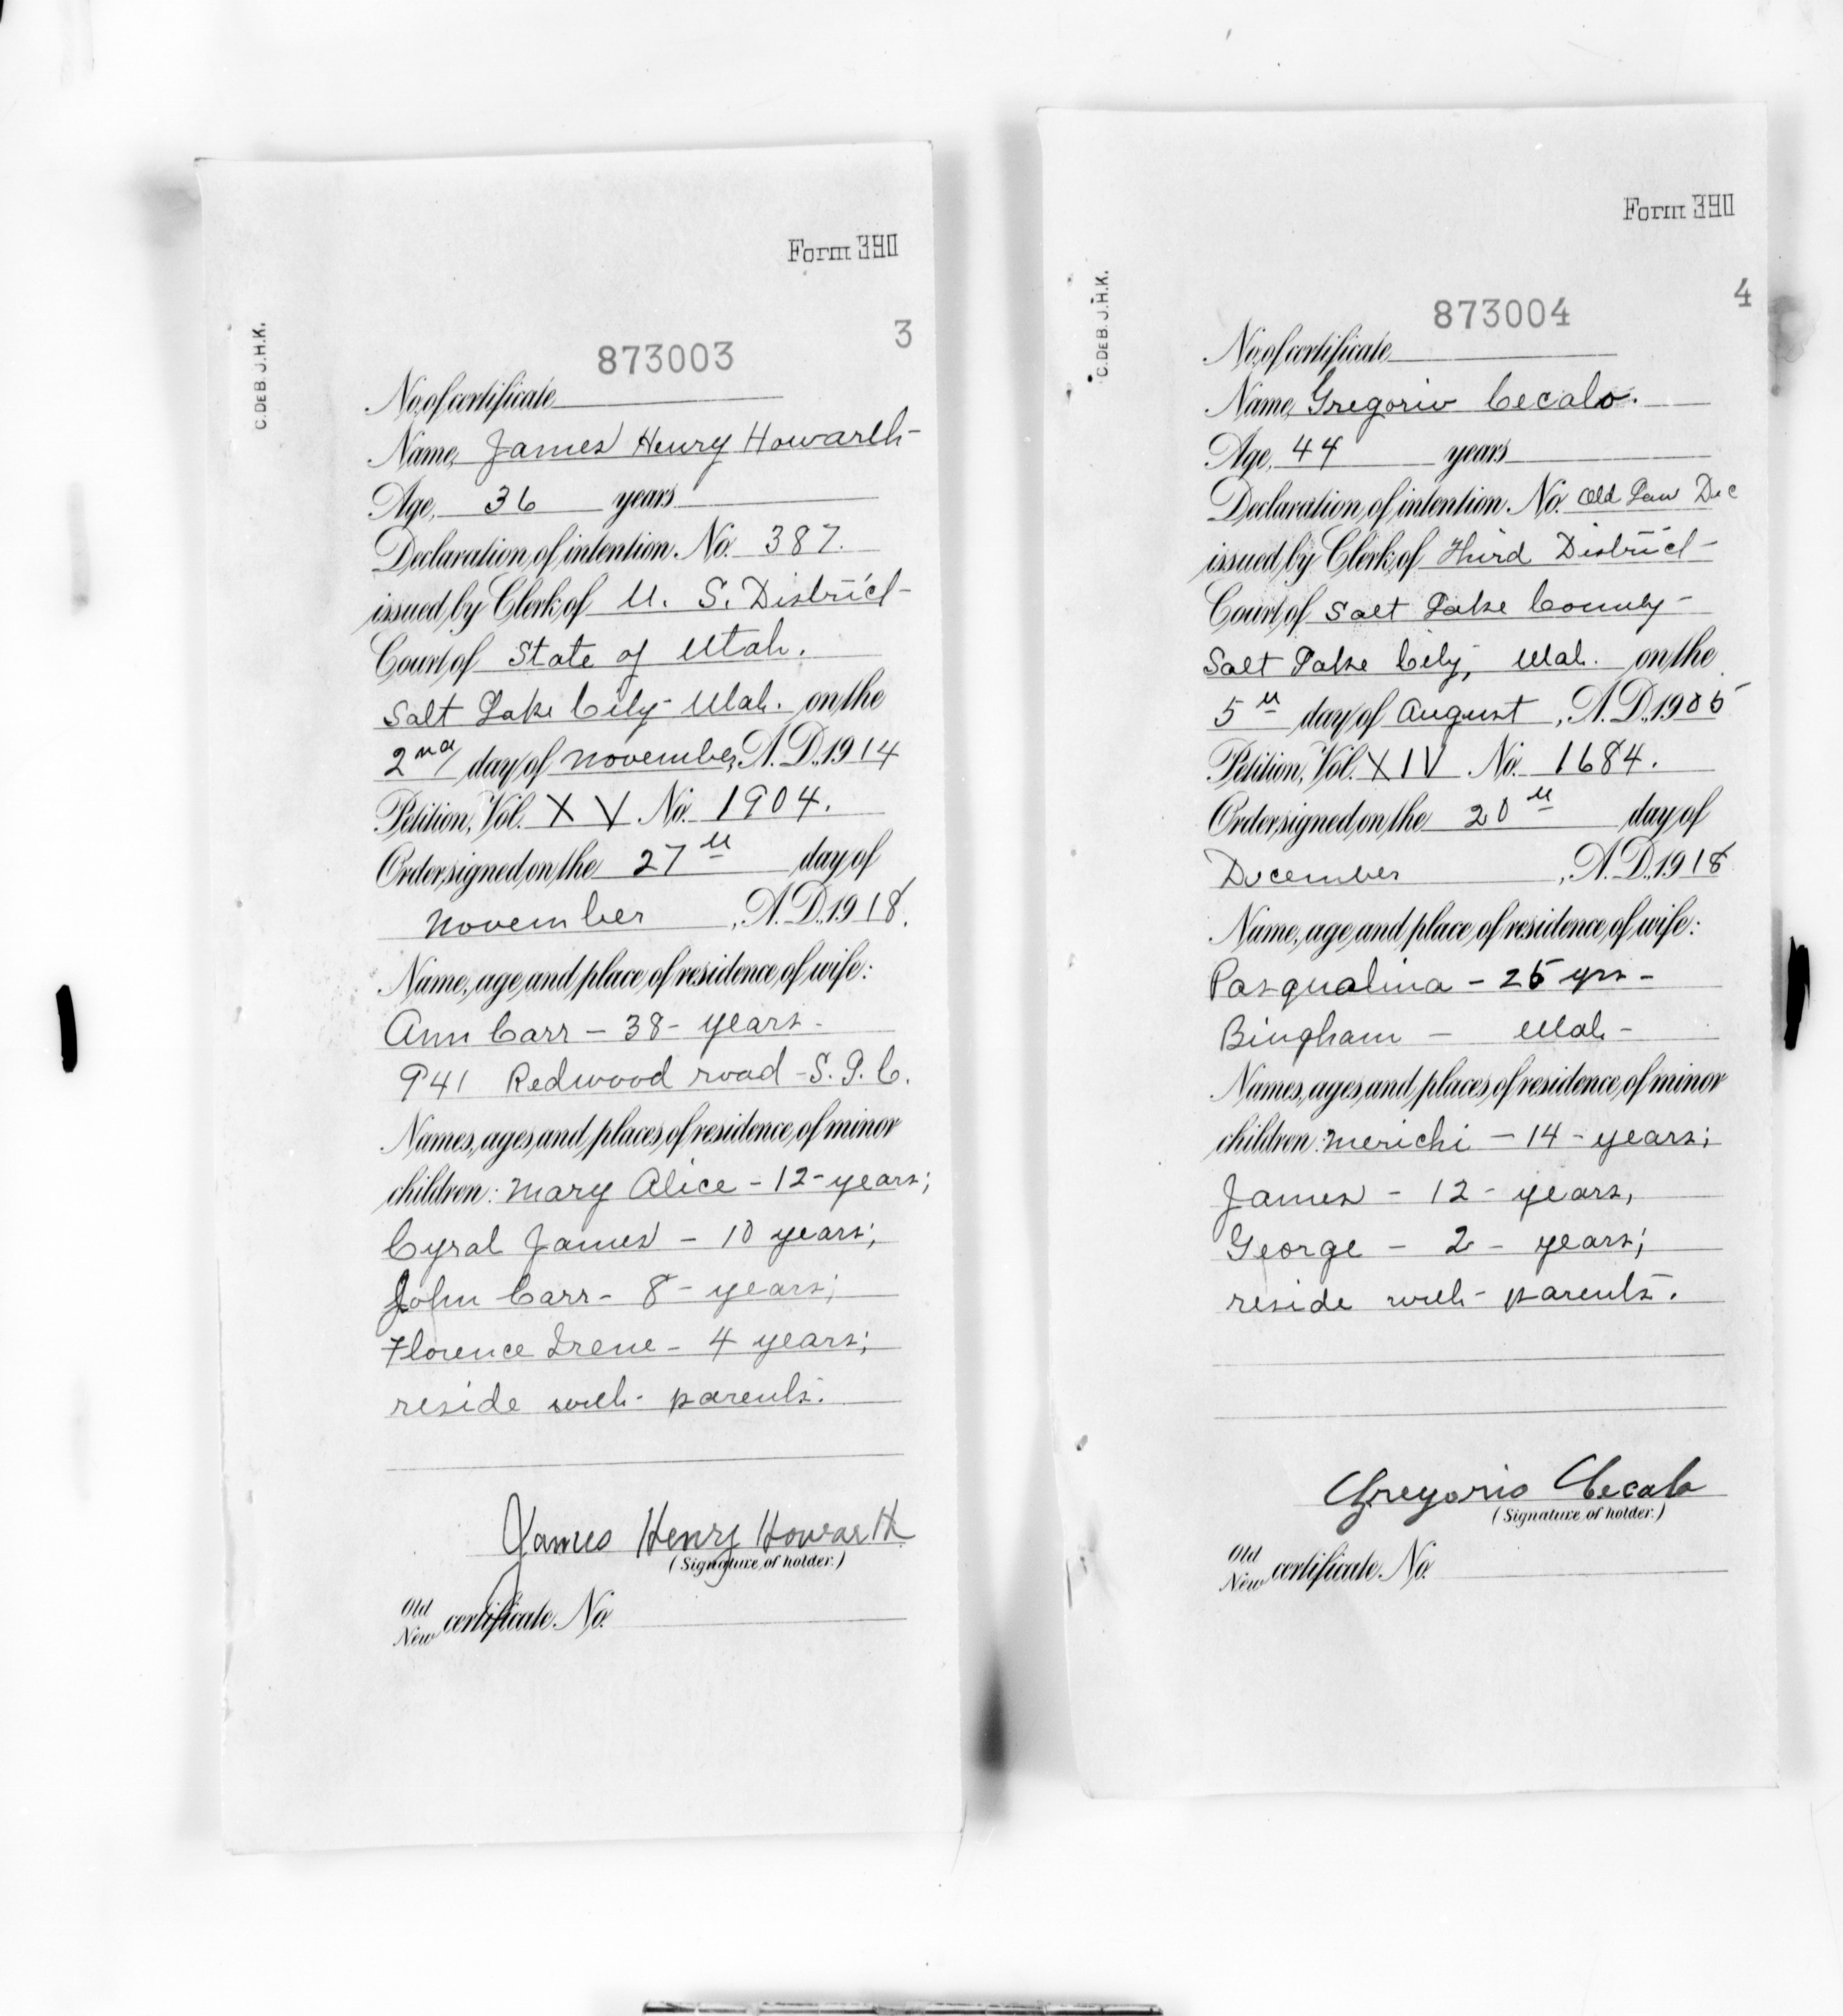 Form 390
3
C. DE B. J.H.K.
873003
No. of certificate
Name, James Henry Howarth
Age, 36 years
Declaration of intention. No. 387.
issued by Clerk of U. S. District
Court of State of Utah.
Salt Lake City Utah. on the
2nd day of November, A. D. 1914
Petition, Vol. XV No. 1904.
Order signed on the 27th day of
November, A. D. 1918.
Name, age and place of residence of wife:
Ann Carr - 38 - years -
941 Redwood road - S. L. C.
Names, ages and places of residence of minor
children: Mary Alice - 12 - years;
Cyral James - 10 years;
John Carr - 8 - years;
Florence Irene - 4 years;
reside with parents.
James Henry Howarth
(Signature of holder.)
Old
New certificate. No.
Form 390
4
C. DE B. J.H.K.
873004
No. of certificate
Name, Gregorio Cecalo.
Age, 44 years
Declaration of intention. No. Old Law Dec
issued by Clerk of Third District
Court of Salt Lake County
Salt Lake City, Utah. on the
5th day of August, A. D. 1905
Petition, Vol. XIV No. 1684.
Order signed on the 20th day of
December, A. D. 1918
Name, age and place of residence of wife:
Pasqualina - 25 yrs -
Bingham - Utah -
Names, ages and places of residence of minor
children: Merichi - 14 - years;
James - 12 - years,
George - 2 - years;
reside with parents.
Gregorio Cecalo
(Signature of holder.)
Old
New certificate. No.